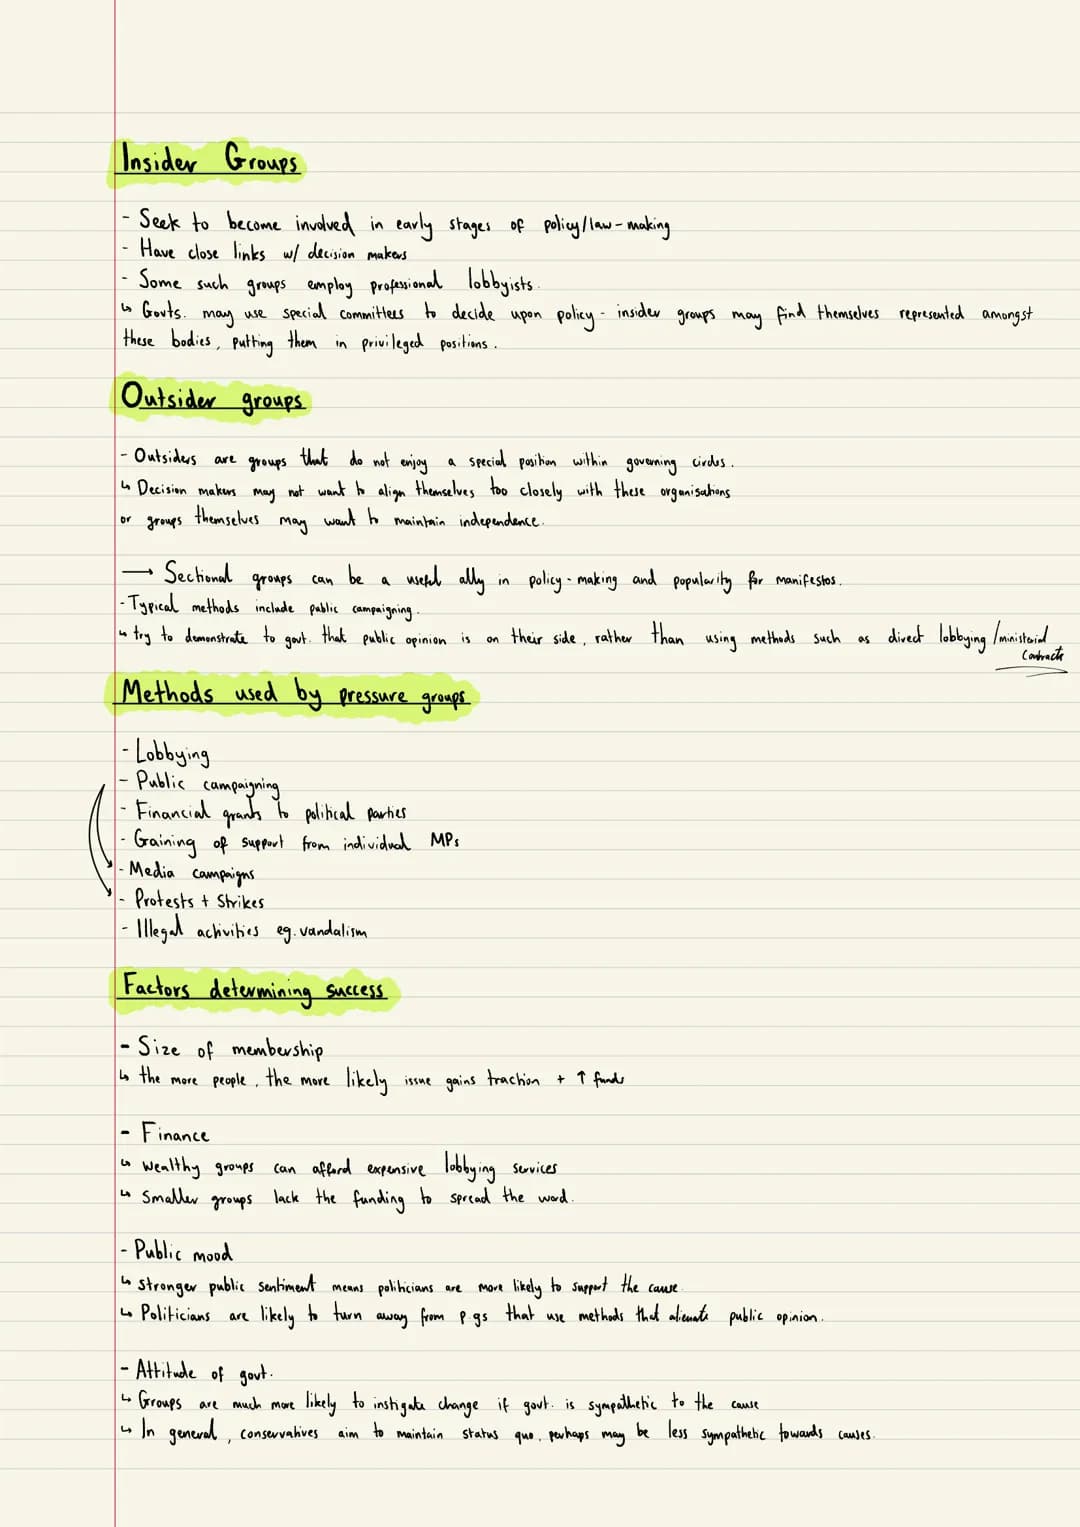 Insider Groups
- Seek to become involved in early stages of policy/law-making
- Have close links w/ decision makers
- Some such groups employ professional lobbyists.
↳ Govts. may use special committees to decide upon policy - insider groups may find themselves represented amongst
these bodies, putting them in privileged positions.
Outsider groups
- Outsiders are groups that do not enjoy a special position within governing circles.
↳ Decision makers may not want to align themselves too closely with these organisations
or groups themselves may want to maintain independence.
→ Sectional groups can be a useful ally in policy-making and popularity for manifestos.
- Typical methods include public campaigning.
↳ try to demonstrate to govt. that public opinion is on their side, rather than using methods such as direct lobbying/ministerial
contracts
Methods used by pressure groups
- Lobbying
- Public campaigning
- Financial grants to political parties
- Gaining of support from individual MPs
- Media campaigns
- Protests + Strikes
- Illegal activities eg. vandalism
Factors determining success
- Size of membership
↳ the more people, the more likely issue gains traction + ↑ funds
- Finance
↳ Wealthy groups can afford expensive lobbying services
↳ Smaller groups lack the funding to spread the word.
- Public mood
↳ Stronger public sentiment means politicians are more likely to support the cause.
↳ Politicians are likely to turn away from p.gs that use methods that alienate public opinion.
- Attitude of govt.
↳ Groups are much more likely to instigate change if govt. is sympathetic to the cause
↳ In general, conservatives aim to maintain status quo, perhaps may be less sympathetic towards causes.